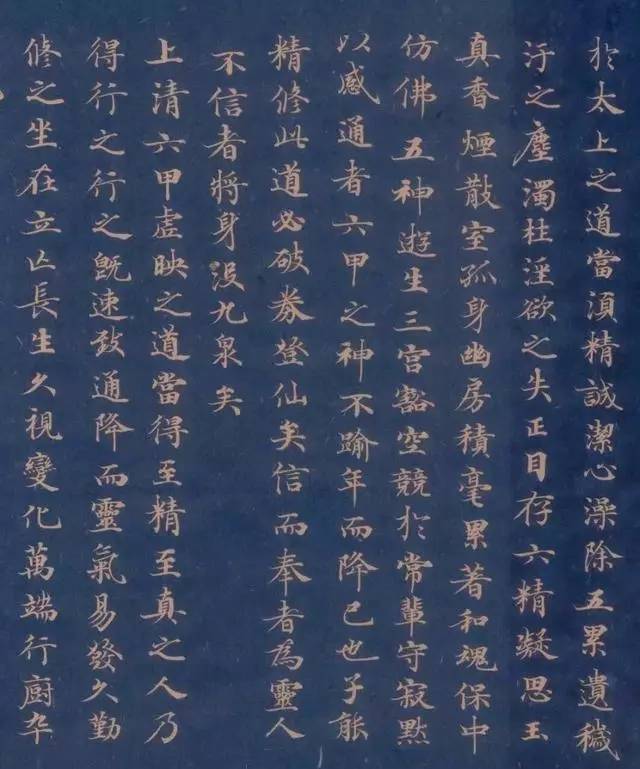 於太上之道當須精誠潔心澡除五累遺穢
汙之塵濁杜淫欲之失正目存六精凝思玉
真香煙散室孤身幽房積毫累著和魂保中
仿佛五神遊生三宮豁空競於常輩守寂默
以感通者六甲之神不踰年而降己也子能
精修此道必破券登仙矣信而奉者為靈人
不信者將身沒九泉矣
上清六甲虛映之道當得至精至真之人乃
得行之行之既速致通降而靈氣易發久勤
修之坐在立亡長生久視變化萬端行廚卒